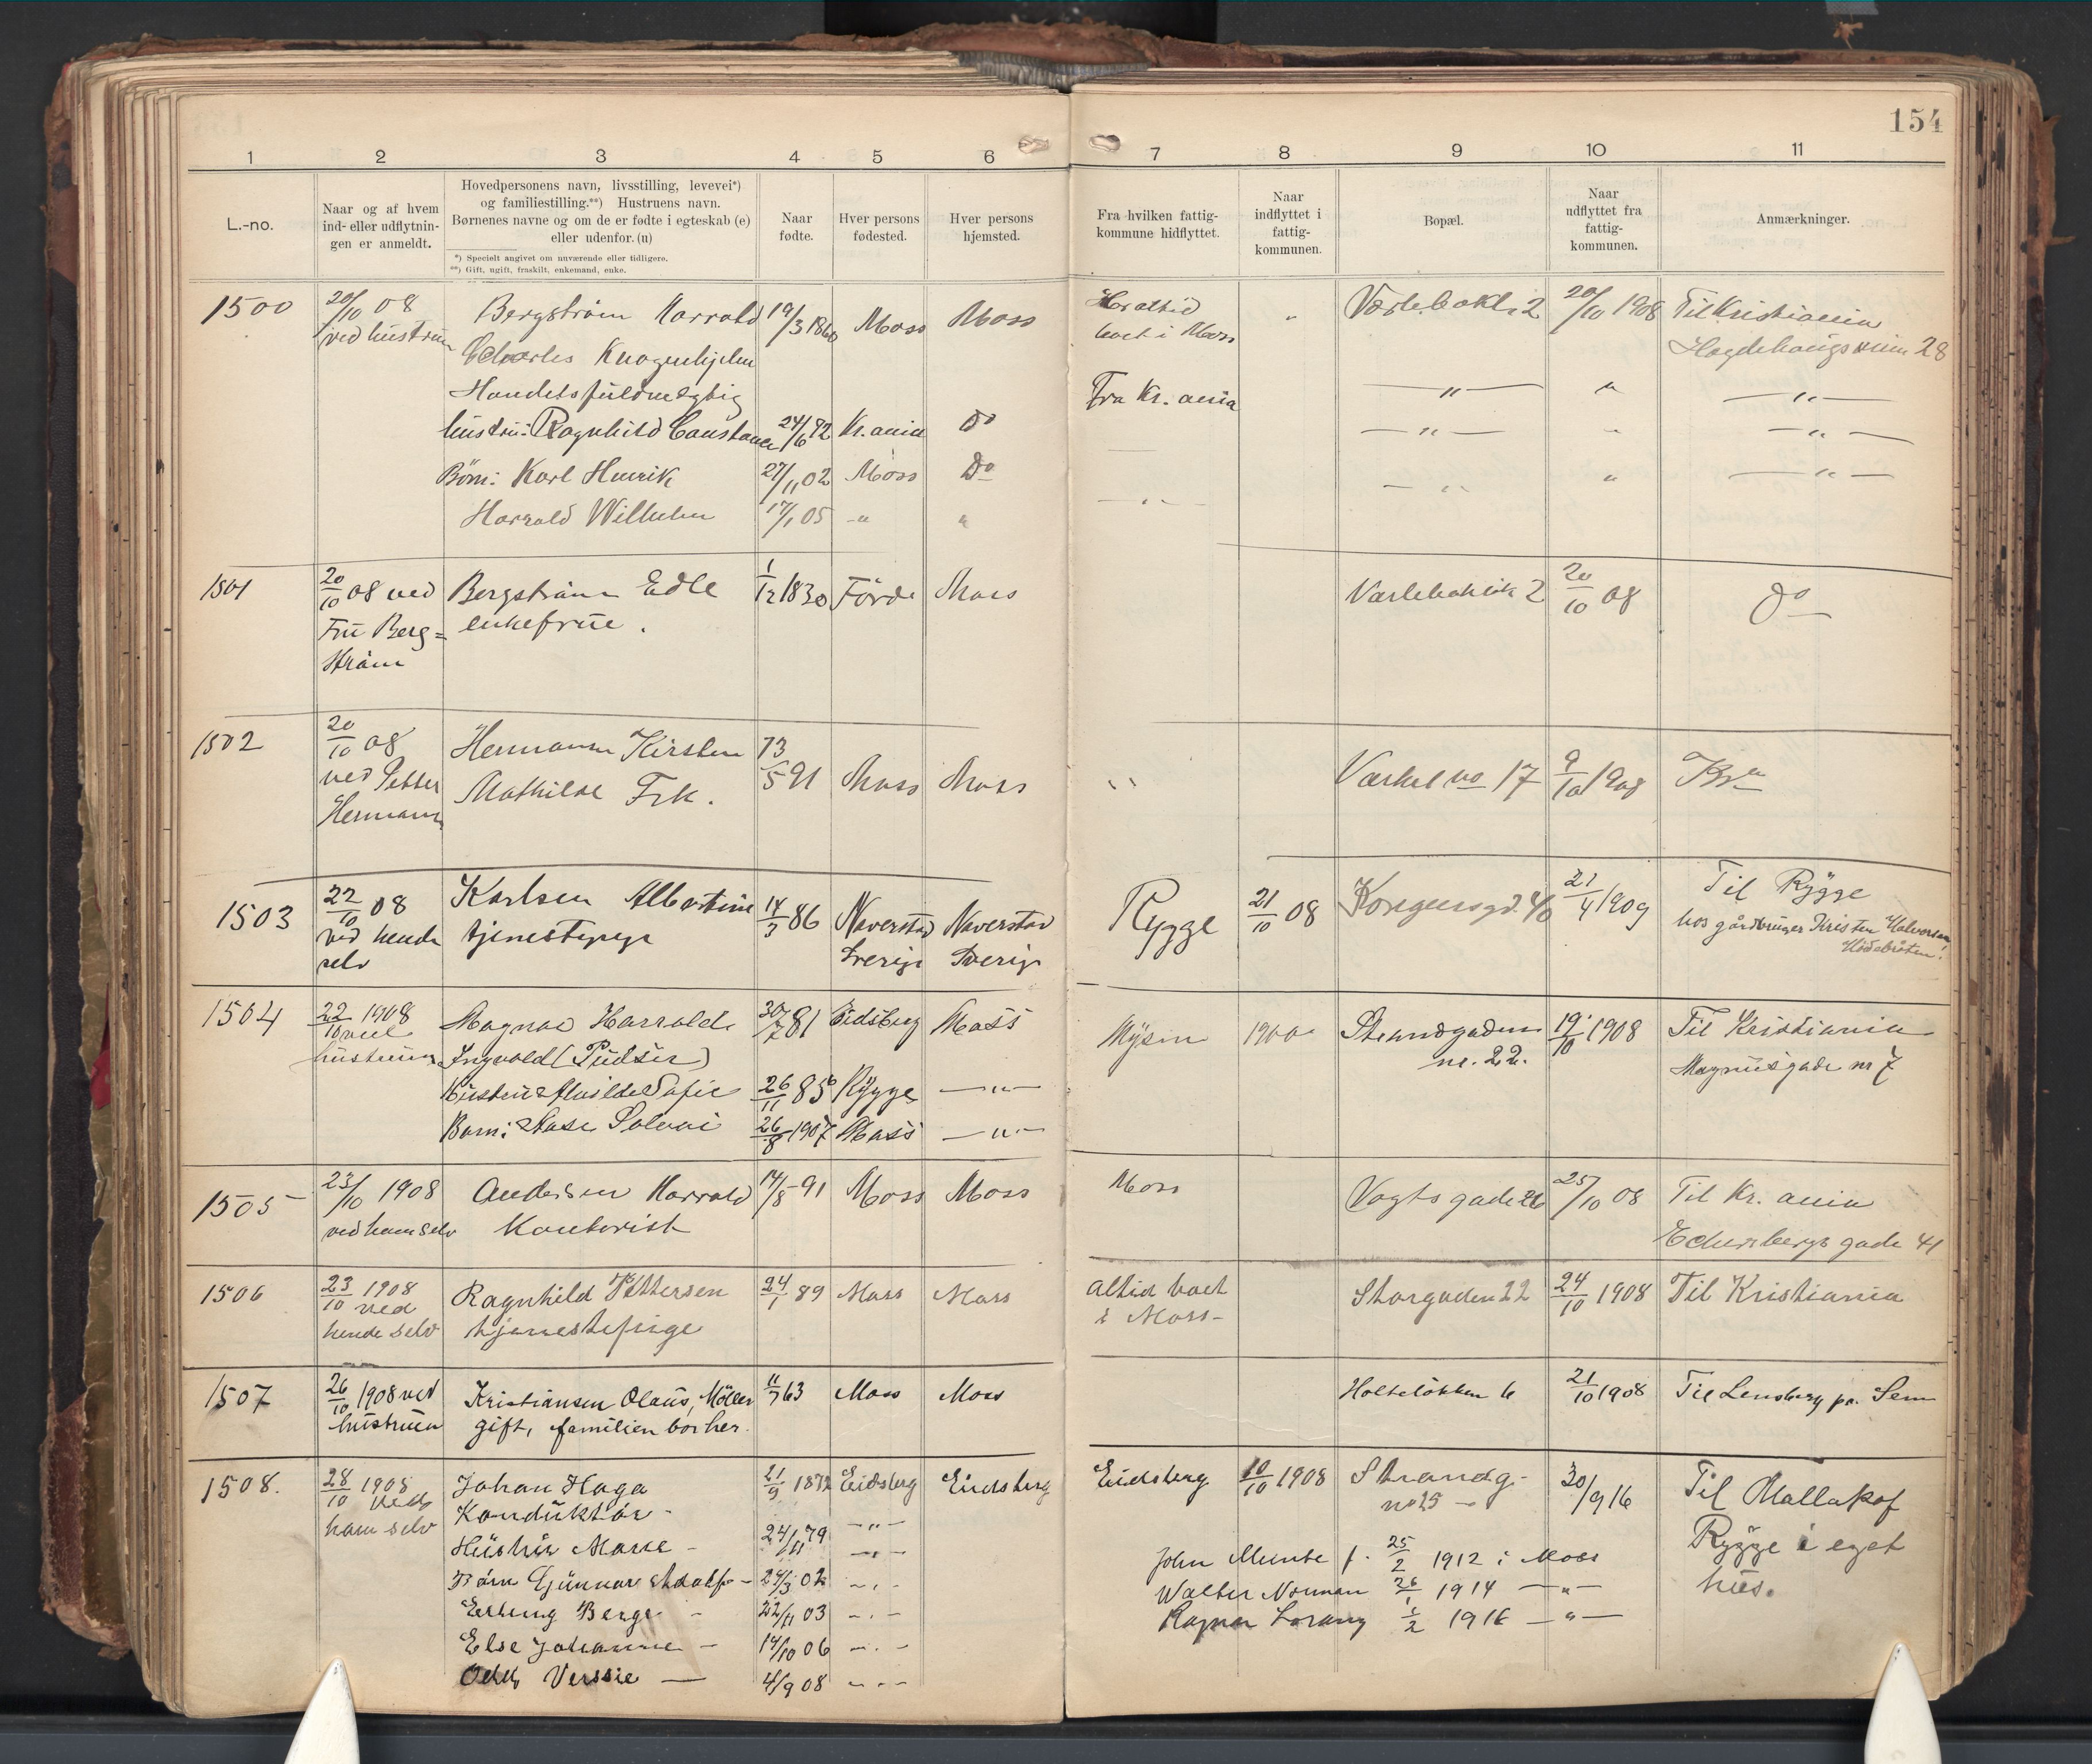 154
1 2 3 4 5 6 7 8 9 10 11
L.-no.
Naar og af hvem
ind- eller udflytnin-
gen er anmeldt.
Hovedpersonens navn, livsstilling, levevei*)
og familiestilling.**) Hustruens navn.
Børnenes navne og om de er fødte i egteskab (e)
eller udenfor. (u)
*) Specielt angivet om nuværende eller tidligere.
**) Gift, ugift, fraskilt, enkemand, enke.
Naar
fødte.
Hver persons
fødested.
Hver persons
hjemsted.
Fra hvilken fattig-
kommune hidflyttet.
Naar
indflyttet i
fattig-
kommunen.
Bopæl.
Naar
udflyttet fra
fattig-
kommunen.
Anmærkninger.
1500 20/10 08 Bergström Harrald 19/3 1860 Moss Moss Har altid " 2 20/10 1908 Til Kristiania
ved hustruen Charles Knagenhjelm boet i Moss 28
Handelsfuldmegtig Fra Kr.ania — " — " — " —
hustru: Ragnhild Constance 24/6 72 Kr.ania Do — " — " — " —
Börn: Karl Henrik 27/11 02 Moss Do — " — " — " —
Harrald Wilhelm 17/1 05 — " " — " —
1501 20/10 08 ved Bergström Edle 1/12 1830 Förde Moss 2 20/10 08 Do
Fru Berg= enkefrue.
ström
1502 20/10 08 Hermansen Kirsten 13/5 91 Moss Moss " Værket no 17 9/10 1908 Kr.a
ved Petter Mathilde Frk.
Hermansen
1503 22/10 08 Karlsen Albertine 14/3 86 Naverstad Naverstad Rygge 21/10 08 Kongensgd. 40 21/4 1909 Til Rygge
ved hende tjenestepige Sverige Sverige hos gårdbruger Kristen Halvorsen
selv
1504 22/10 1908 Magnae Harrald 30/7 81 Eidsberg Moss Mysen 1900 Strandgaden 19/10 1908 Til Kristiania
ved nr. 22.
hustruen Ingvald (Pudser) Magnusgade nr 7
Hustru: Sofie 26/11 85 Rygge — " —
Barn: Aase Solvei 26/8 1907 Moss — " —
1505 23/10 1908 Andersen Harrald 14/8 91 Moss Moss Moss Vogtsgade 26 25/10 08 Til Kr.ania
ved ham selv Kontorist gade 41
1506 23/10 1908 Ragnhild Pettersen 24/1 89 Moss Moss altid boet Storgaden 22 24/10 1908 Til Kristiania
ved
hende selv tjenestepige i Moss-
1507 26/10 1908 ved Kristiansen Olaus, Möller 11/7 63 Moss Moss Holteløkken 6 21/10 1908 Til Lensberg pr. Sem
hustruen gift, familien bor her.
1508. 28/10 1908 Johan Haga 21/9 1872 Eidsberg Eidsberg Eidsberg 10/10 1908 Strandg. 30/9 16 Til Mallakof
ved Konduktör - no 25 - Rygge i eget
ham selv Hustru Marie - 24/11 79 — " — hus.
Börn Gunnar Adolf - 24/3 02 — " —
Erling Berge - 22/11 03 — " —
Else Johanne - 14/10 06 — " —
Odd Verssie — 4/9 08 — " —
John Munte f. 25/2 1912 i Moss
Walter Norman 26/1 1914 — " —
Ragnar Lorang 1/2 1916 — " —